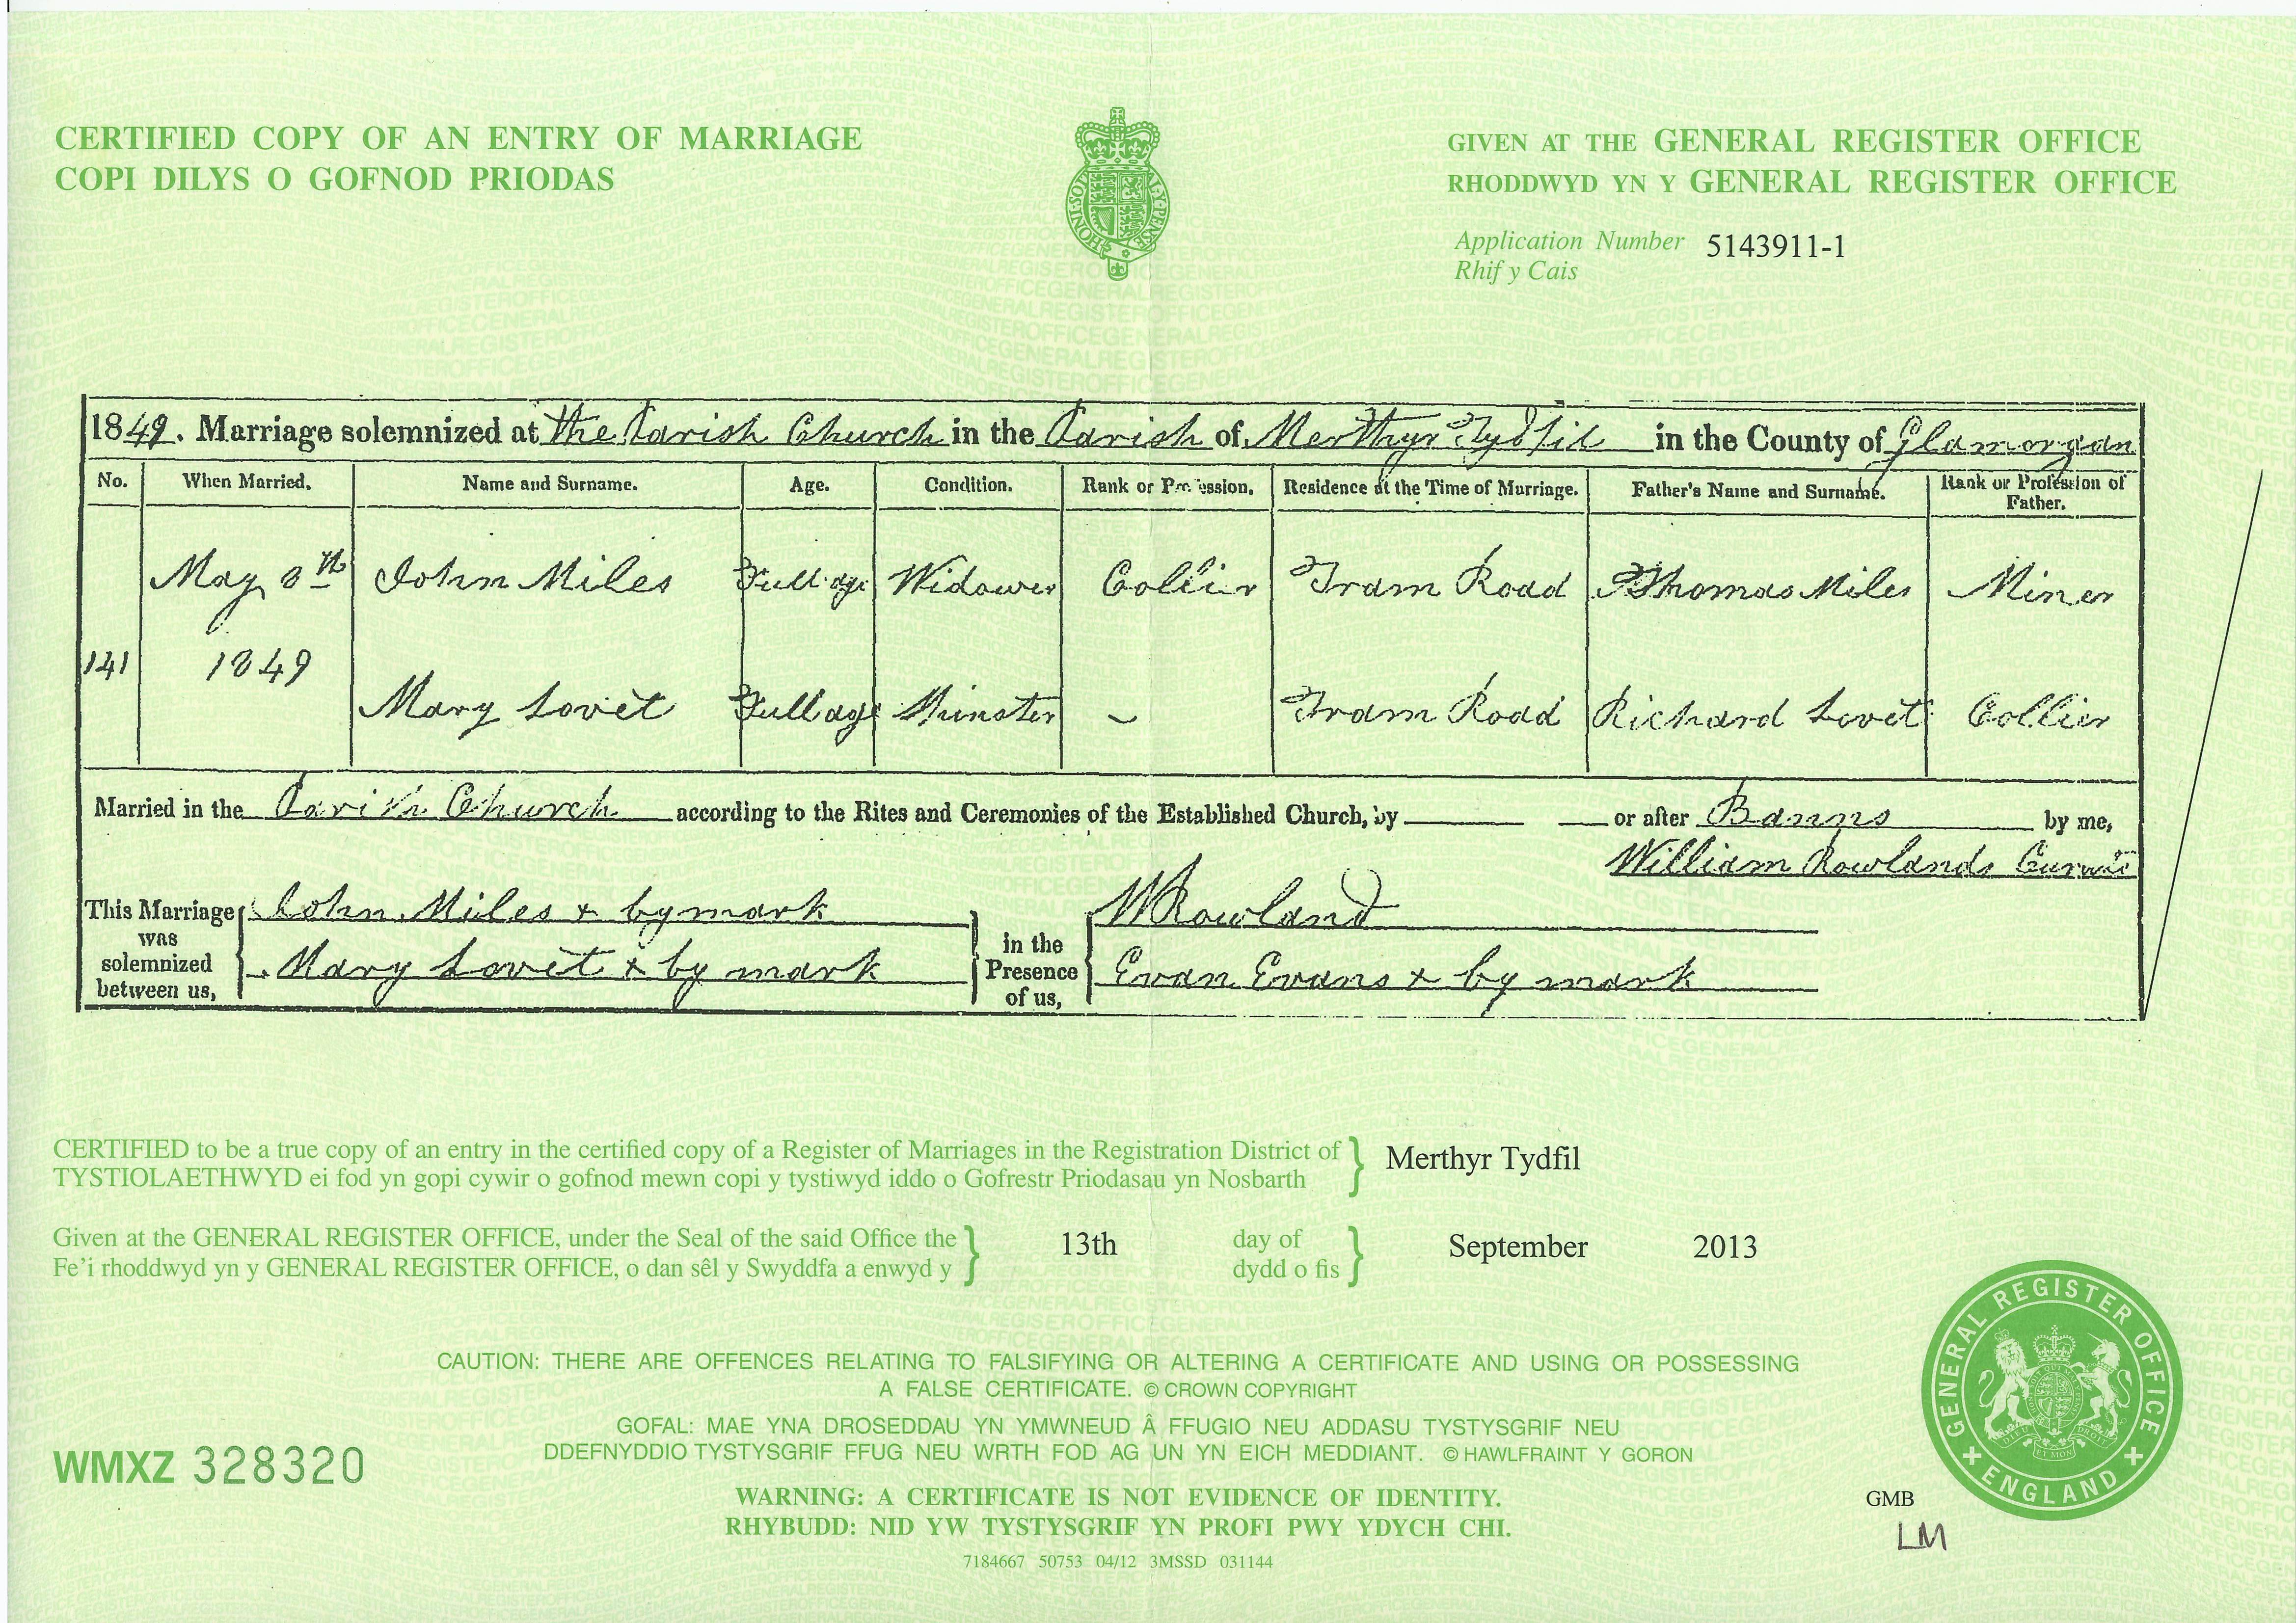 CERTIFIED COPY OF AN ENTRY OF MARRIAGE
COPI DILYS O GOFNOD PRIODAS
HONI·SOIT L·Y·PENSE
GIVEN AT THE GENERAL REGISTER OFFICE
RHODDWYD YN Y GENERAL REGISTER OFFICE
Application Number 5143911-1
Rhif y Cais
1849. Marriage solemnized at the Parish Church in the Parish of Merthyr Tydfil in the County of Glamorgan
No. When Married. Name and Surname. Age. Condition. Rank or Profession. Residence at the Time of Marriage. Father's Name and Surname. Rank or Profession of Father.
May 8th John Miles Full age Widower Collier Tram Road Thomas Miles Miner
141 1849
Mary Lovet Full age Tram Road Richard Lovet Collier
Married in the Parish Church according to the Rites and Ceremonies of the Established Church, by or after Banns by me,
William Rowlands Curate
This Marriage was solemnized between us,
John Miles x by mark
Mary Lovet x by mark
in the Presence of us,
W Rowland
Evan Evans x by mark
CERTIFIED to be a true copy of an entry in the certified copy of a Register of Marriages in the Registration District of } Merthyr Tydfil
TYSTIOLAETHWYD ei fod yn gopi cywir o gofnod mewn copi y tystiwyd iddo o Gofrestr Priodasau yn Nosbarth
Given at the GENERAL REGISTER OFFICE, under the Seal of the said Office the } 13th day of } September 2013
Fe'i rhoddwyd yn y GENERAL REGISTER OFFICE, o dan sêl y Swyddfa a enwyd y dydd o fis
CAUTION: THERE ARE OFFENCES RELATING TO FALSIFYING OR ALTERING A CERTIFICATE AND USING OR POSSESSING
A FALSE CERTIFICATE. © CROWN COPYRIGHT
GOFAL: MAE YNA DROSEDDAU YN YMWNEUD Â FFUGIO NEU ADDASU TYSTYSGRIF NEU
DDEFNYDDIO TYSTYSGRIF FFUG NEU WRTH FOD AG UN YN EICH MEDDIANT. © HAWLFRAINT Y GORON
WMXZ 328320
WARNING: A CERTIFICATE IS NOT EVIDENCE OF IDENTITY.
RHYBUDD: NID YW TYSTYSGRIF YN PROFI PWY YDYCH CHI.
7184667 50753 04/12 3MSSD 031144
GENERAL REGISTER OFFICE
ENGLAND
GMB
LM